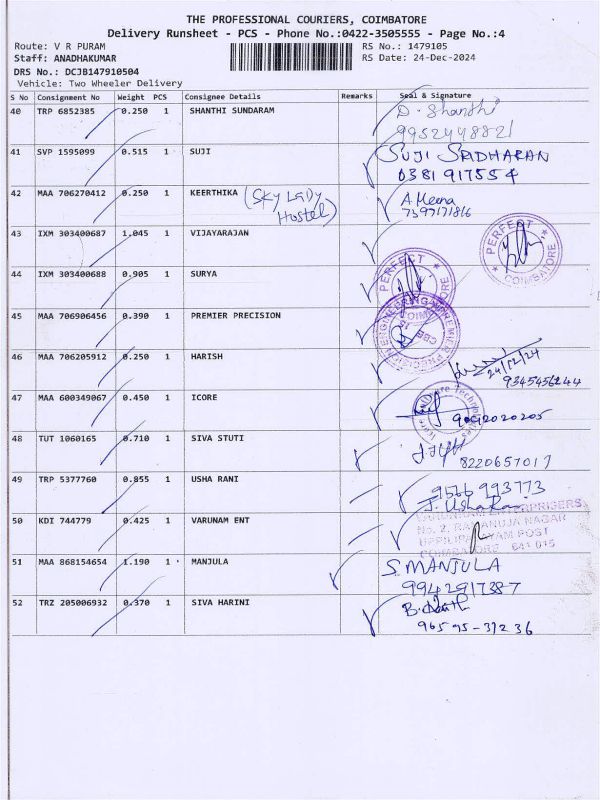 THE PROFESSIONAL COURIERS, COIMBATORE
Delivery Runsheet - PCS - Phone No.:0422-3505555 - Page No.:4
Route: V R PURAM RS No.: 1479105
Staff: ANADHAKUMAR RS Date: 24-Dec-2024
DRS No.: DCJB147910504
Vehicle: Two Wheeler Delivery
S No Consignment No Weight PCS Consignee Details Remarks Seal & Signature
40 TRP 6852385 0.250 1 SHANTHI SUNDARAM D. Shanthi
9952448821
41 SVP 1595099 0.515 1 SUJI SUJI SRIDHARAN
0381 917554
42 MAA 706270412 0.250 1 KEERTHIKA (SKY LADY Hostel) A. Meena
7397171816
43 IXM 303400687 1.045 1 VIJAYARAJAN PERFECT COIMBATORE
44 IXM 303400688 0.905 1 SURYA PERFECT
45 MAA 706906456 0.390 1 PREMIER PRECISION PREMIER PRECISION ENGINEERING
46 MAA 706205912 0.250 1 HARISH 24/12/24
9345456244
47 MAA 600349067 0.450 1 ICORE
9092020205
48 TUT 1060165 0.710 1 SIVA STUTI
8220657017
49 TRP 5377760 0.855 1 USHA RANI 9566 993773
J. Usharani
50 KDI 744779 0.425 1 VARUNAM ENT ENTERPRISERS
No. 2, RAMANUJA NAGAR
UPPILIPALAYAM POST
COIMBATORE 641 015
51 MAA 868154654 1.190 1 MANJULA S. MANJULA
9942917387
52 TRZ 205006932 0.370 1 SIVA HARINI
96595-37236